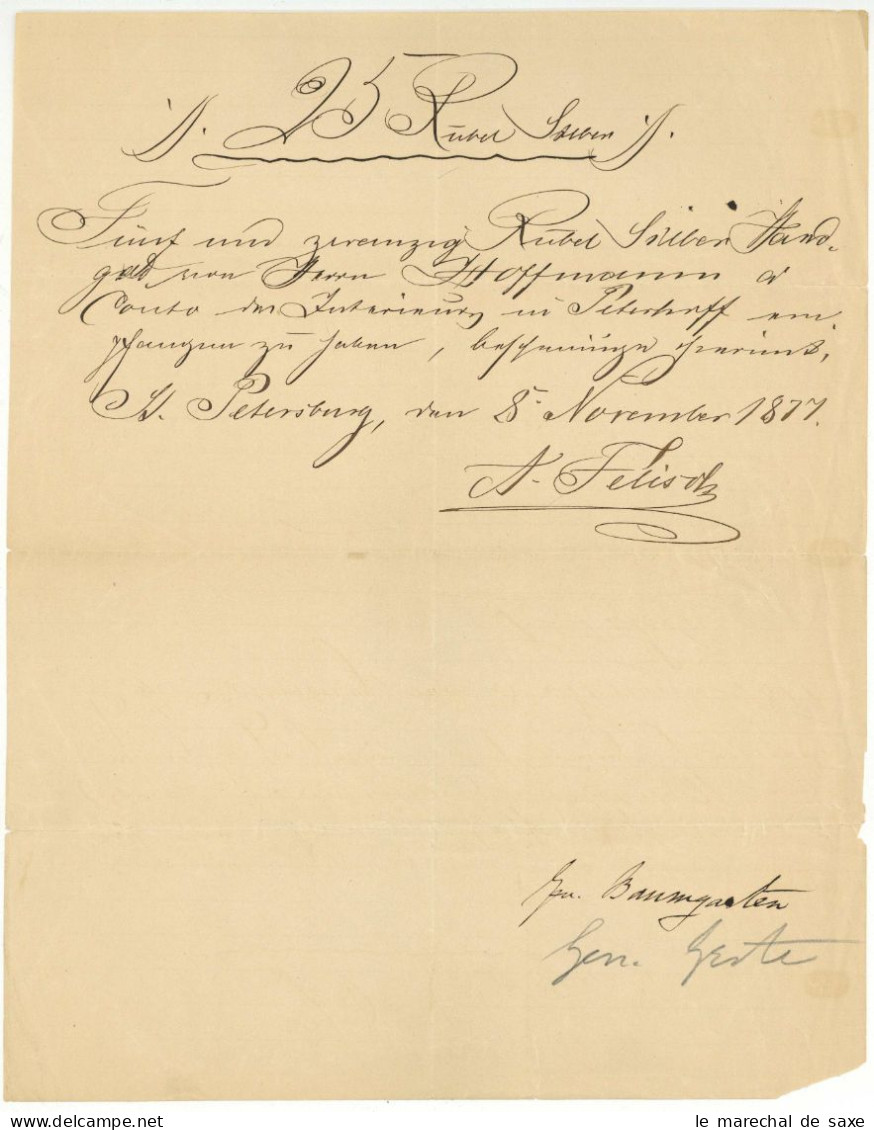 25 Rubel Silber
Fünf und zwanzig Rubel Silber Hand-
geld von Herrn Hoffmann à
Conto des Interieurs in Peterhoff em-
pfangen zu haben, bescheinige hiermit,
St. Petersburg, den 8t November 1877.
A. Felisch
Baumgarten
Gen.
le marechal de saxe